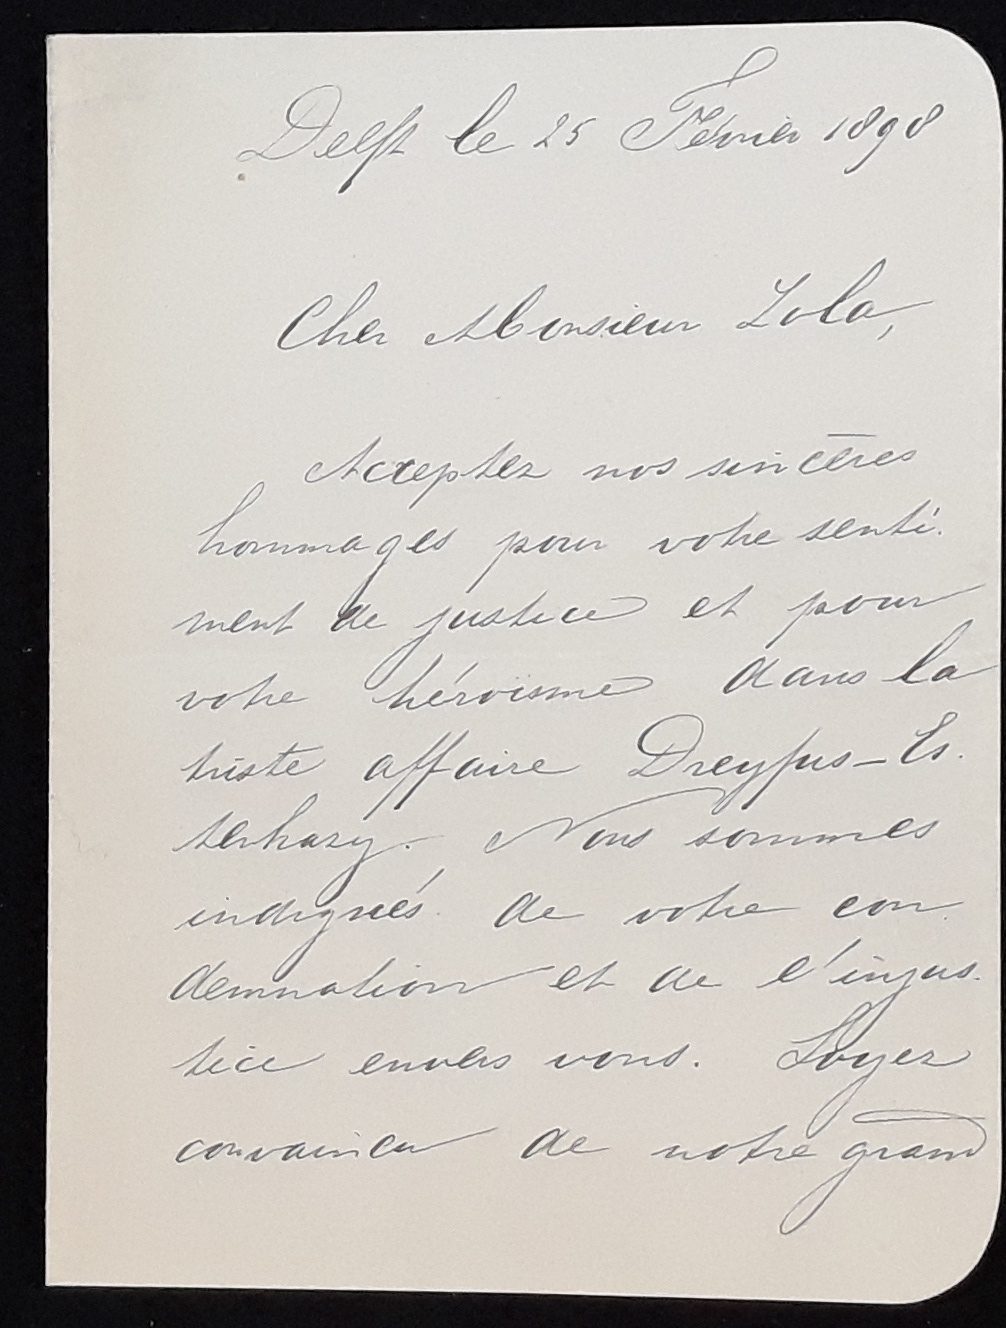 Delft le 25 Février 1898
Cher Monsieur Zola,
Acceptez nos sincères
hommages pour votre senti-
ment de justice et pour
votre héroïsme dans la
triste affaire Dreyfus-Es-
terhazy. Nous sommes
indignés de votre con-
demnation et de l'injus-
tice envers vous. Soyez
convaincu de notre grand